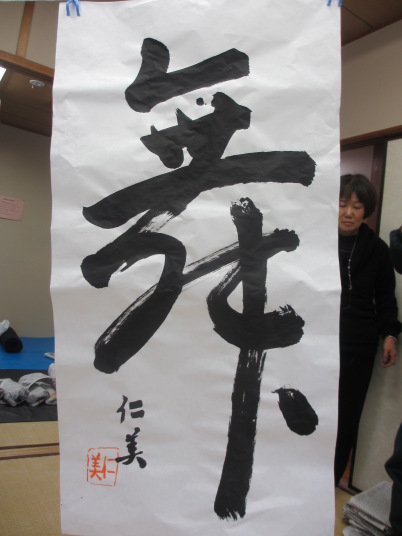 舞
仁美
仁美